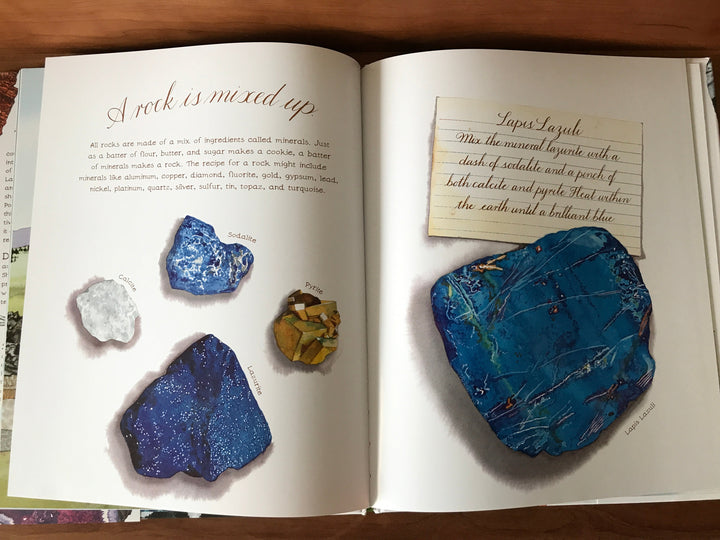 A rock is mixed up.
All rocks are made of a mix of ingredients called minerals. Just
as a batter of flour, butter, and sugar makes a cookie, a batter
of minerals makes a rock. The recipe for a rock might include
minerals like aluminum, copper, diamond, fluorite, gold, gypsum, lead,
nickel, platinum, quartz, silver, sulfur, tin, topaz, and turquoise.
Sodalite
Calcite
Pyrite
Lazurite
Lapis Lazuli
Mix the mineral lazurite with a
dash of sodalite and a pinch of
both calcite and pyrite. Heat within
the earth until a brilliant blue
Lapis Lazuli